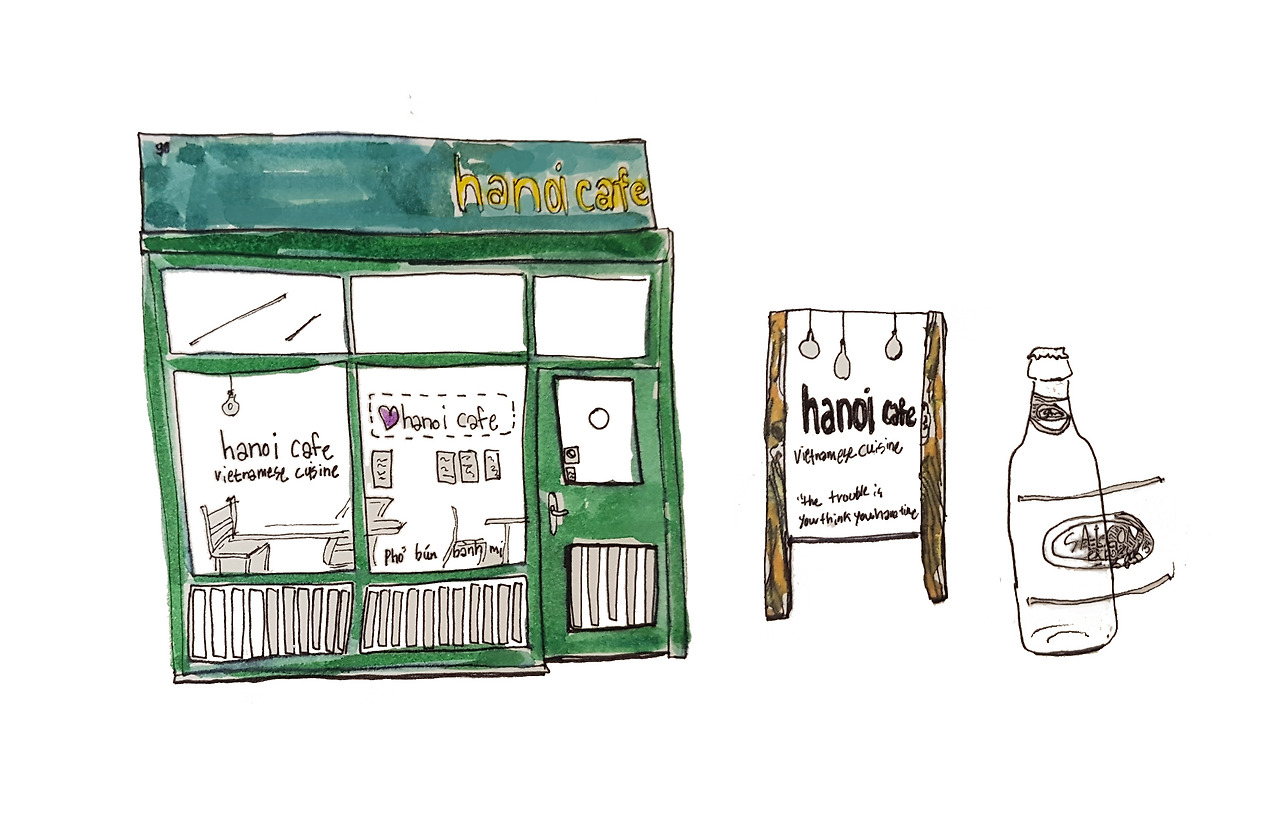 90
hanoi cafe
hanoi cafe
vietnamese cuisine
hanoi cafe
phở bún bánh mì
hanoi cafe
vietnamese cuisine
"the trouble is
you think you have time